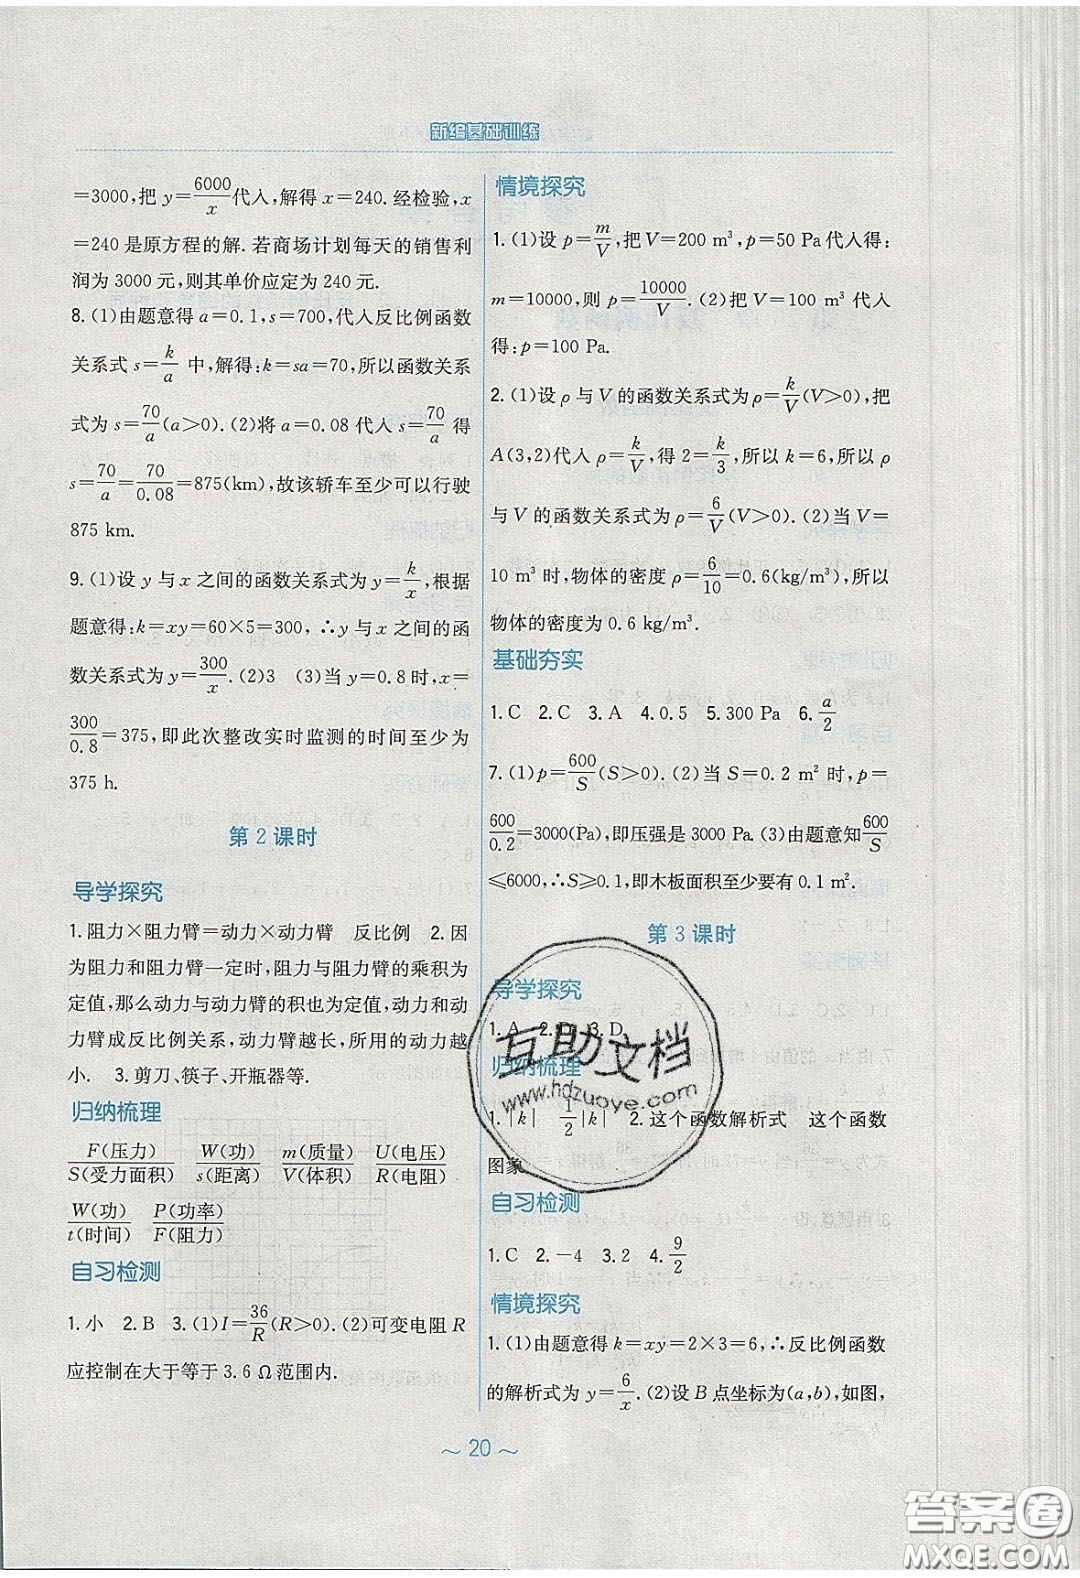 新编基础训练
=3000,把 y=6000/x代入,解得 x=240. 经检验,x
=240 是原方程的解. 若商场计划每天的销售利
润为 3000 元,则其单价应定为 240 元.
8. (1)由题意得 a=0.1,s=700,代入反比例函数
关系式 s=k/a 中,解得:k=sa=70,所以函数关系
式为 s=70/a(a>0). (2)将 a=0.08 代入 s=70/a 得
s=70/a=70/0.08=875(km),故该轿车至少可以行驶
875 km.
9. (1)设 y 与 x 之间的函数关系式为 y=k/x,根据
题意得:k=xy=60×5=300,∴y 与 x 之间的函
数关系式为 y=300/x. (2)3 (3)当 y=0.8 时,x=
300/0.8=375,即此次整改实时监测的时间至少为
375 h.
第 2 课时
导学探究
1. 阻力×阻力臂=动力×动力臂 反比例 2. 因
为阻力和阻力臂一定时,阻力与阻力臂的乘积为
定值,那么动力与动力臂的积也为定值,动力和动
力臂成反比例关系,动力臂越长,所用的动力越
小. 3. 剪刀、筷子、开瓶器等.
归纳梳理
F(压力)/S(受力面积) W(功)/s(距离) m(质量)/V(体积) U(电压)/R(电阻)
W(功)/t(时间) P(功率)/F(阻力)
自习检测
1. 小 2. B 3. (1)I=36/R(R>0). (2)可变电阻 R
应控制在大于等于 3.6 Ω 范围内.
情境探究
1. (1)设 p=m/V,把 V=200 m³,p=50 Pa 代入得:
m=10000,则 p=10000/V. (2)把 V=100 m³ 代入
得:p=100 Pa.
2. (1)设 ρ 与 V 的函数关系式为 ρ=k/V(V>0),把
A(3,2)代入 ρ=k/V,得 2=k/3,所以 k=6,所以 ρ
与 V 的函数关系式为 ρ=6/V(V>0). (2)当 V=
10 m³ 时,物体的密度 ρ=6/10=0.6(kg/m³),所以
物体的密度为 0.6 kg/m³.
基础夯实
1. C 2. C 3. A 4. 0.5 5. 300 Pa 6. a/2
7. (1)p=600/S(S>0). (2)当 S=0.2 m² 时,p=
600/0.2=3000(Pa),即压强是 3000 Pa. (3)由题意知600/S
≤6000,∴S≥0.1,即木板面积至少要有 0.1 m².
第 3 课时
导学探究
1. A 2. D 3. D
归纳梳理
1. |k| 1/2|k| 2. 这个函数解析式 这个函数
图象
自习检测
1. C 2. -4 3. 2 4. 9/2
情境探究
1. (1)由题意得 k=xy=2×3=6,∴反比例函数
的解析式为 y=6/x. (2)设 B 点坐标为(a,b),如图,
～ 20 ～
互助文档
www.hdzuoye.com
答案圈
MXQE.COM